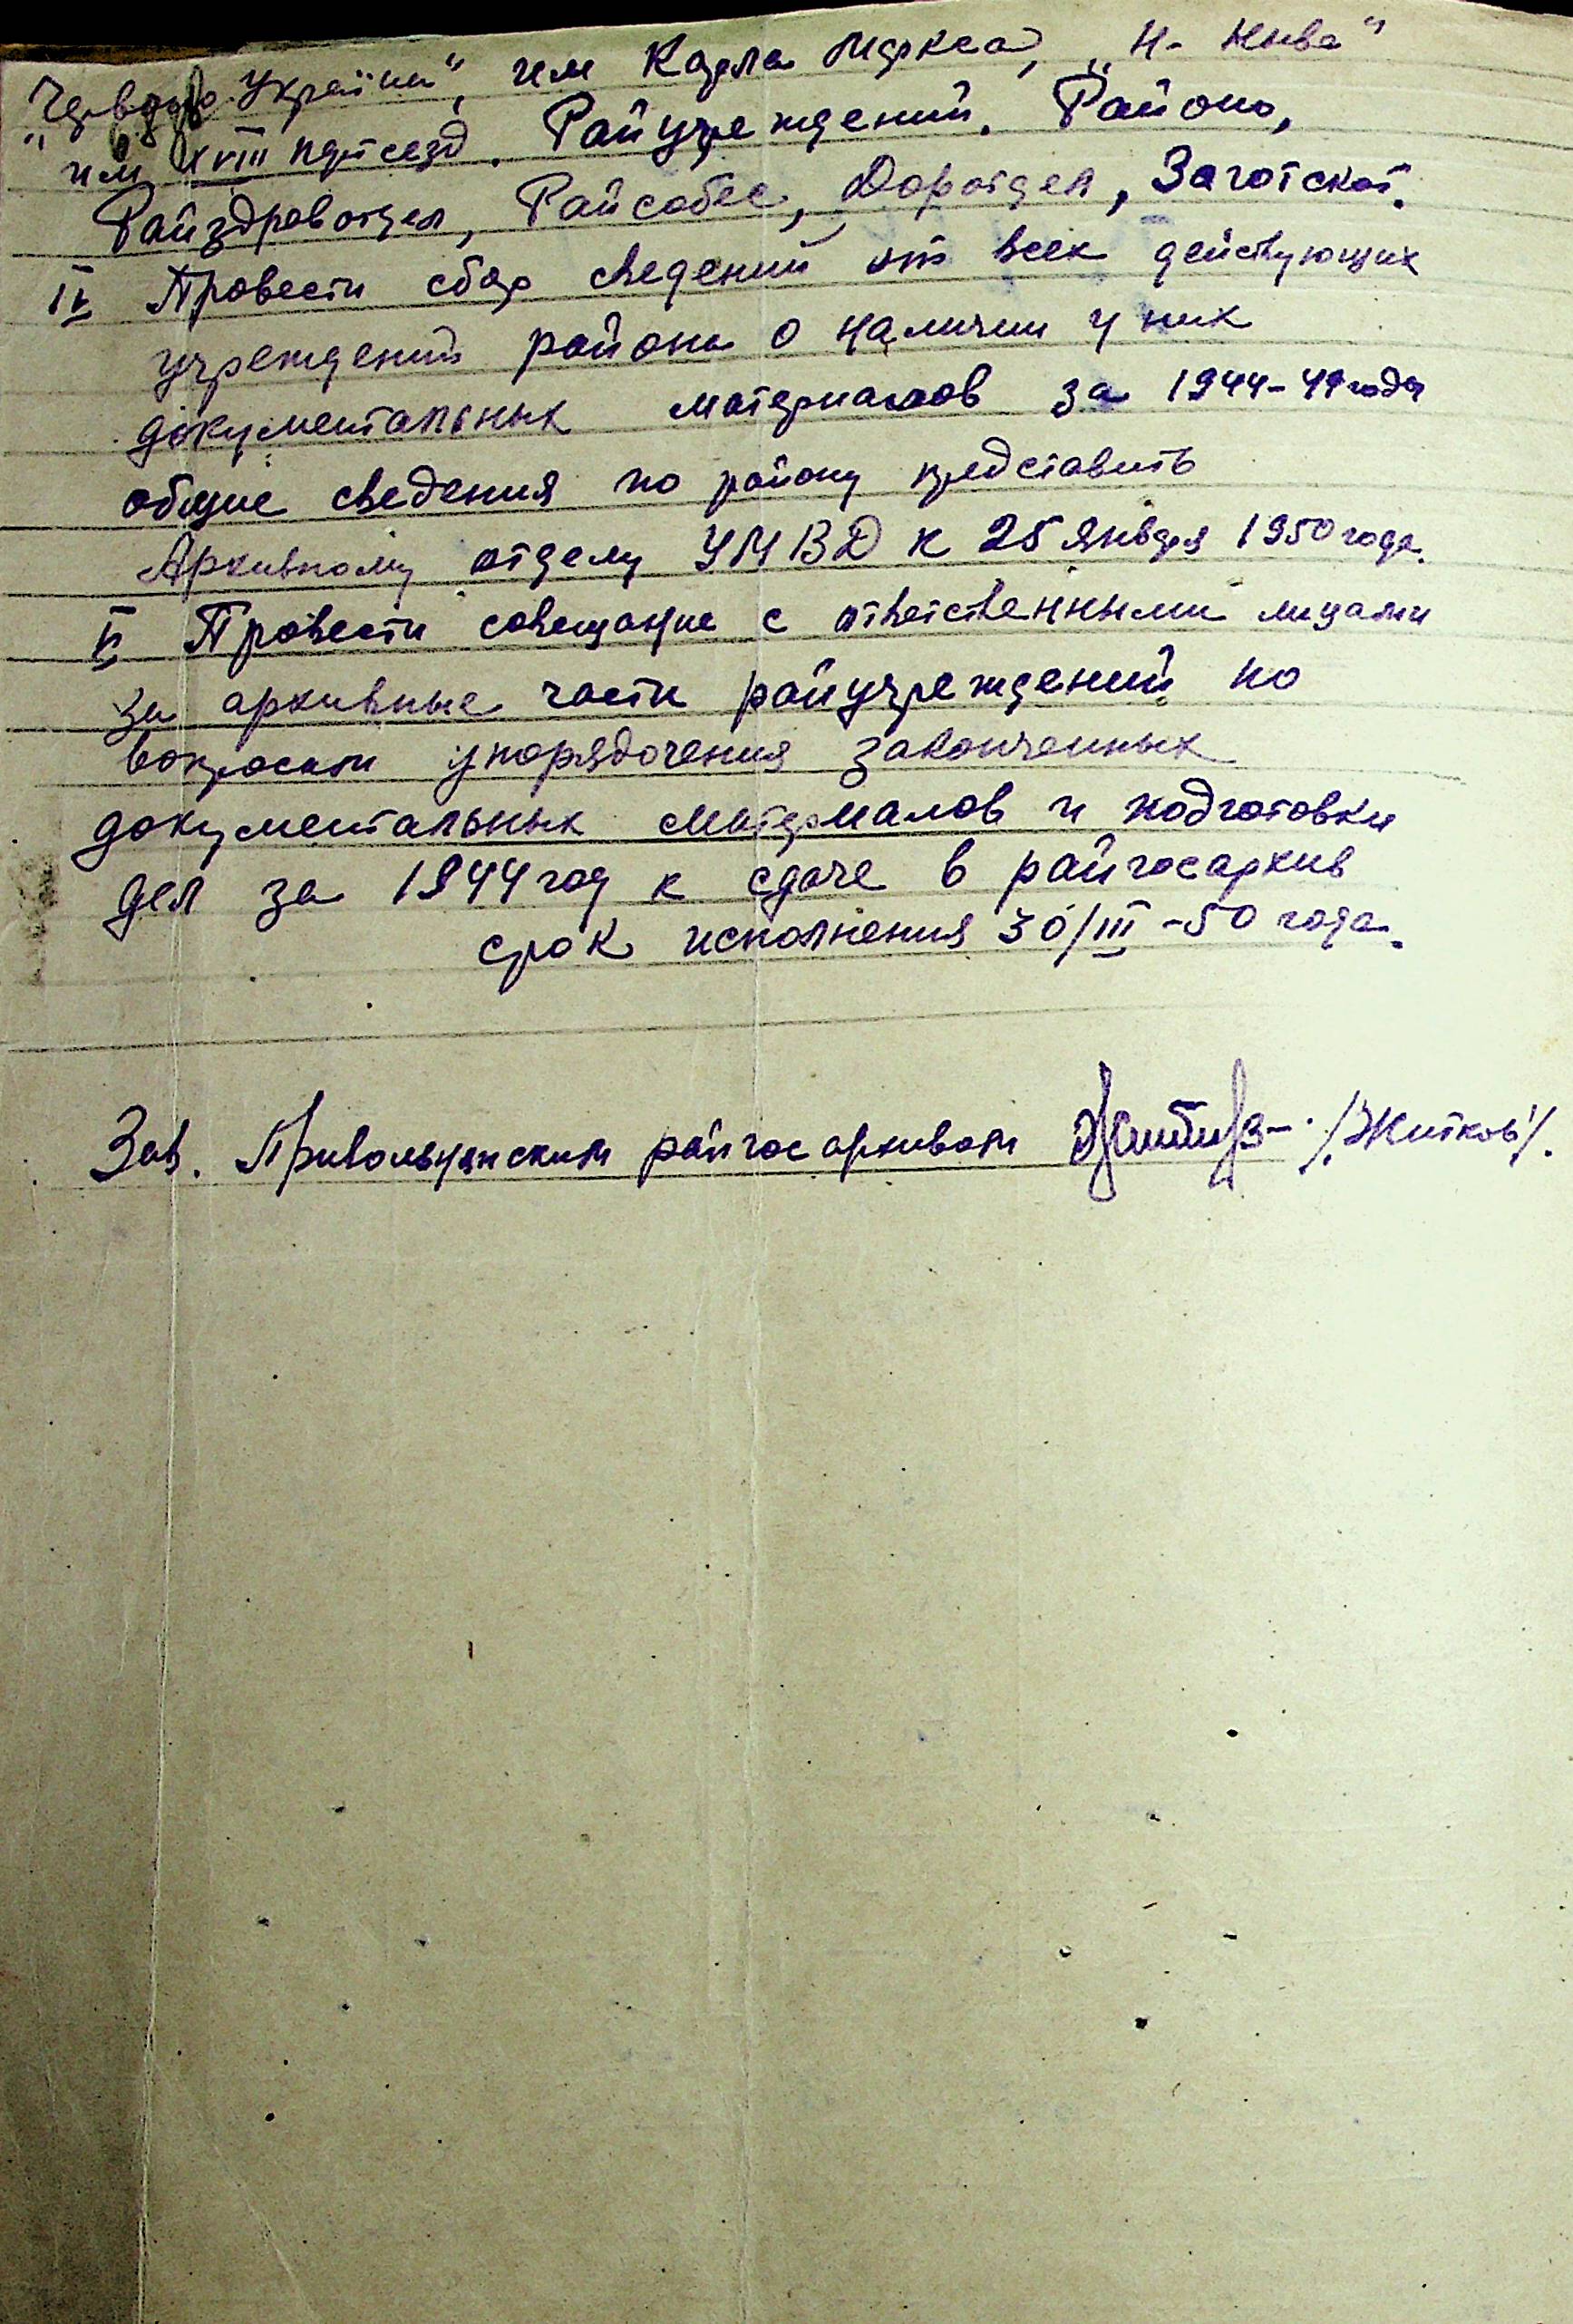 „Червона Україна", им Карла Маркса, „Н- Нива"
им XVIII партсезд. Райучреждений. Районо,
Райздравотдел, Райсобес, Доротдел, Заготскот.
IV Провести сбор сведений от всех действующих
учреждений района о наличии у них
документальных материалов за 1944-49 года
общие сведения по району представить
Архивному отделу УМВД к 25 января 1950 года.
V Провести совещание с ответственными лицами
за архивные части райучреждений по
вопросам упорядочения законченных
документальных материалов и подготовки
дел за 1944 год к сдаче в райгосархив
срок исполнения 30/III-50 года.
Зав. Привольнянским райгосархивом /Житков/.